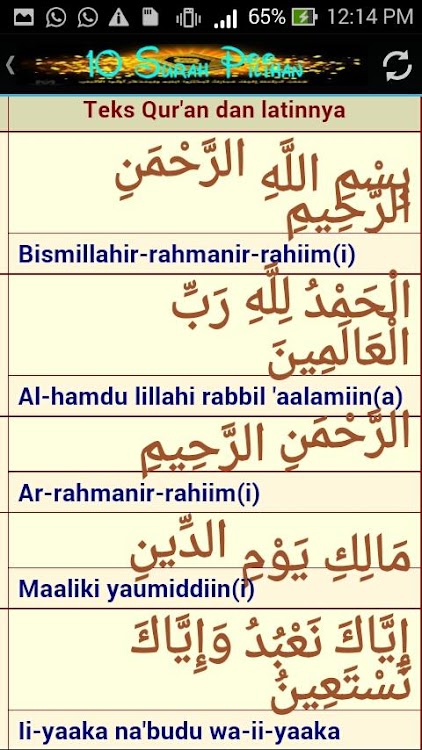 65% 12:14 PM
10 Surah Pilihan
Teks Qur'an dan latinnya
بِسْمِ اللَّهِ الرَّحْمَنِ
الرَّحِيمِ
Bismillahir-rahmanir-rahiim(i)
الْحَمْدُ لِلَّهِ رَبِّ
الْعَالَمِينَ
Al-hamdu lillahi rabbil 'aalamiin(a)
الرَّحْمَنِ الرَّحِيمِ
Ar-rahmanir-rahiim(i)
مَالِكِ يَوْمِ الدِّينِ
Maaliki yaumiddiin(i)
إِيَّاكَ نَعْبُدُ وَإِيَّاكَ
نَسْتَعِينُ
Ii-yaaka na'budu wa-ii-yaaka